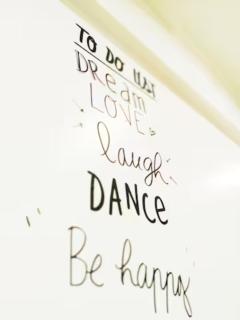 TO DO LIST
DReam
LOVE
laugh
DANCe
Be happy